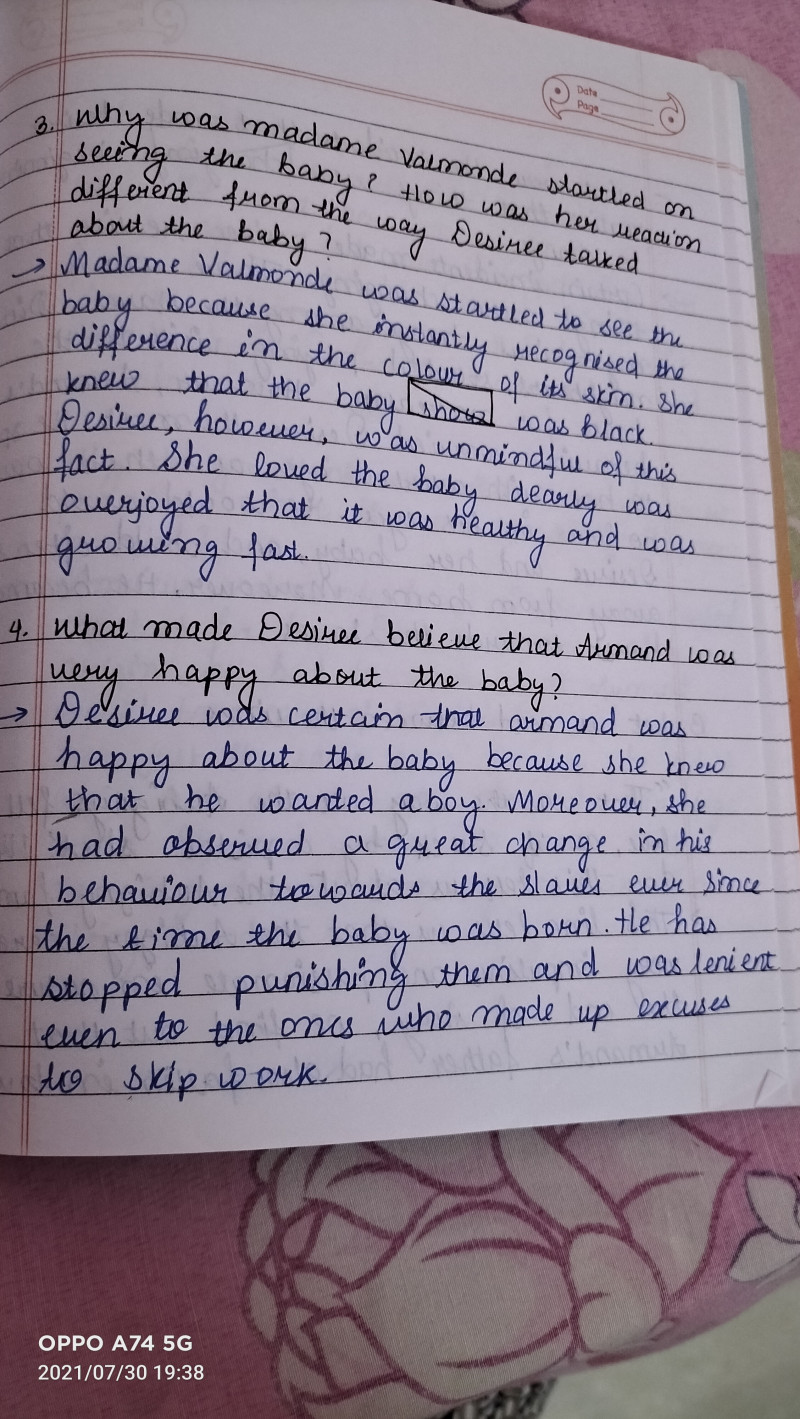 Date
Page
3. Why was madame Valmonde startled on
seeing the baby? How was her reacion
different from the way Desiree talked
about the baby?
→ Madame Valmonde was startled to see the
baby because she instantly recognised the
difference in the colour of its skin. She
knew that the baby show was black.
Desiree, however, was unmindful of this
fact. She loved the baby dearly was
overjoyed that it was healthy and was
growing fast.
4. What made Desiree believe that Armand was
very happy about the baby?
→ Desiree was certain that armand was
happy about the baby because she knew
that he wanted a boy. Moreover, she
had observed a great change in his
behaviour towards the slaves ever since
the time the baby was born. He has
stopped punishing them and was lenient
even to the ones who made up excuses
to skip work.
OPPO A74 5G
2021/07/30 19:38